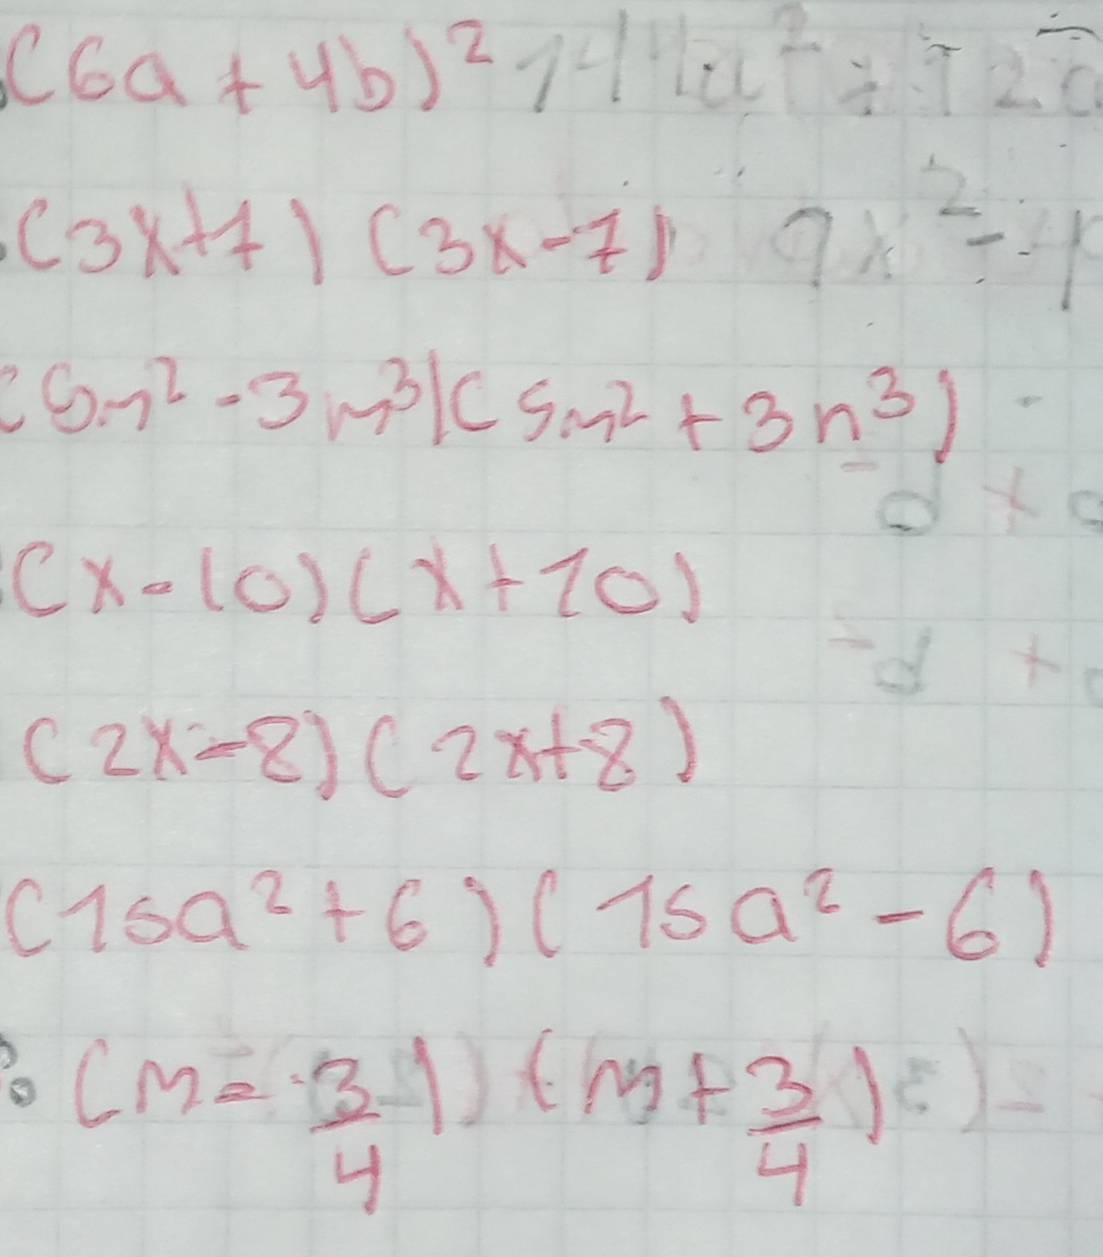 (6a + 4b)²
(3x+7) (3x-7) 9x² -
(5m² - 3n³)(5m² + 3n³)
(x-10)(x+10)
(2x-8)(2x+8)
(15a²+6)(15a²-6)
(m - 3/4) (m + 3/4)